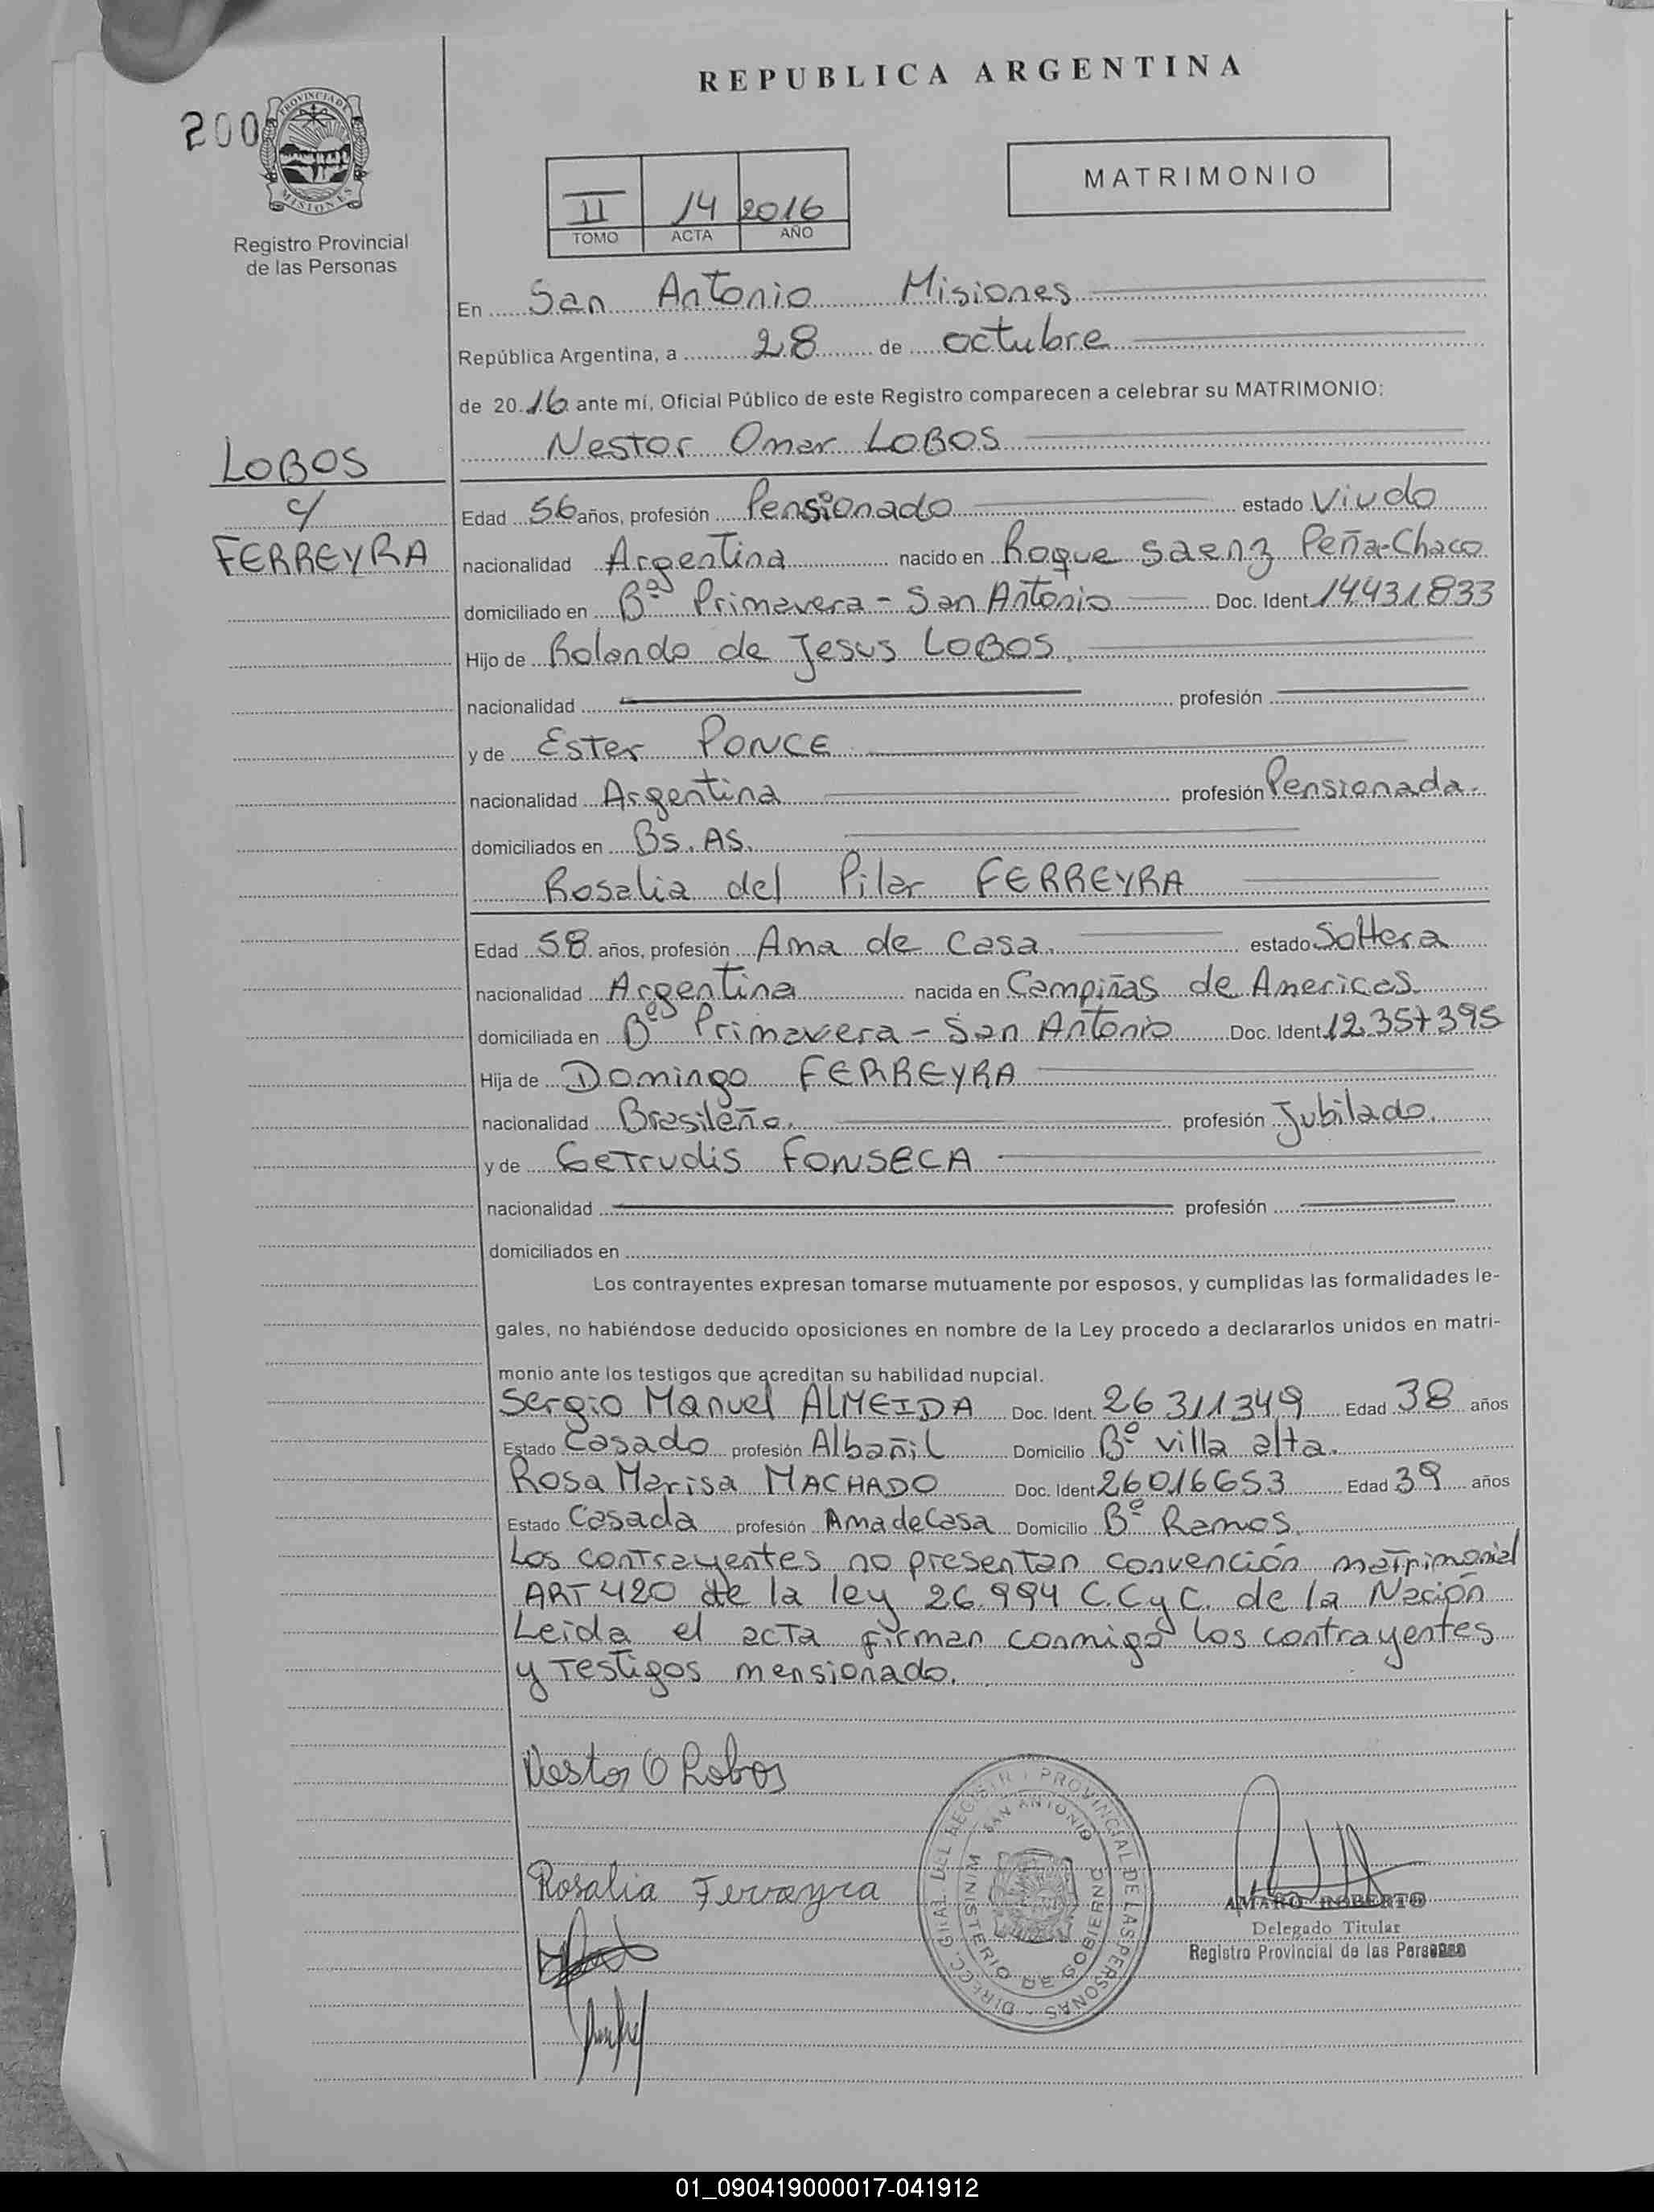 REPUBLICA ARGENTINA
200
PROVINCIA DE
MISIONES
Registro Provincial
de las Personas
II 14 2016
TOMO ACTA AÑO
MATRIMONIO
En San Antonio Misiones
República Argentina, a 28 de octubre
de 2016 ante mí, Oficial Público de este Registro comparecen a celebrar su MATRIMONIO:
Nestor Omar LOBOS
LOBOS
c/
FERREYRA
Edad 56 años, profesión Pensionado estado Viudo
nacionalidad Argentina nacido en Roque Saenz Peña-Chaco
domiciliado en Bº Primavera - San Antonio Doc. Ident 14431833
Hijo de Rolando de Jesus LOBOS
nacionalidad profesión
y de Ester PONCE
nacionalidad Argentina profesión Pensionada.
domiciliados en Bs. AS.
Rosalia del Pilar FERREYRA
Edad 58 años, profesión Ama de Casa. estado Soltera
nacionalidad Argentina nacida en Campiñas de Americas
domiciliada en Bº Primavera - San Antonio Doc. Ident 12.357395
Hija de Domingo FERREYRA
nacionalidad Brasileño. profesión Jubilado.
y de Getrudis FONSECA
nacionalidad profesión
domiciliados en
Los contrayentes expresan tomarse mutuamente por esposos, y cumplidas las formalidades le-
gales, no habiéndose deducido oposiciones en nombre de la Ley procedo a declararlos unidos en matri-
monio ante los testigos que acreditan su habilidad nupcial.
Sergio Manuel ALMEIDA Doc. Ident. 26311349 Edad 38 años
Estado Casado profesión Albañil Domicilio Bº villa alta.
Rosa Marisa MACHADO Doc. Ident 26016653 Edad 39 años
Estado Casada profesión Ama de Casa Domicilio Bº Ramos.
Los contrayentes no presentan convención matrimonial
ART 420 de la ley 26.994 C.C y C. de la Nación
Leida el acta firman conmigo los contrayentes
y Testigos mensionado.
Nestor O Lobos
Rosalia Ferreyra
DIRECC. GRAL. DEL REGISTRO PROVINCIAL DE LAS PERSONAS
SAN ANTONIO
MINISTERIO DE GOBIERNO
AMARO ROBERTO
Delegado Titular
Registro Provincial de las Personas
01_090419000017-041912